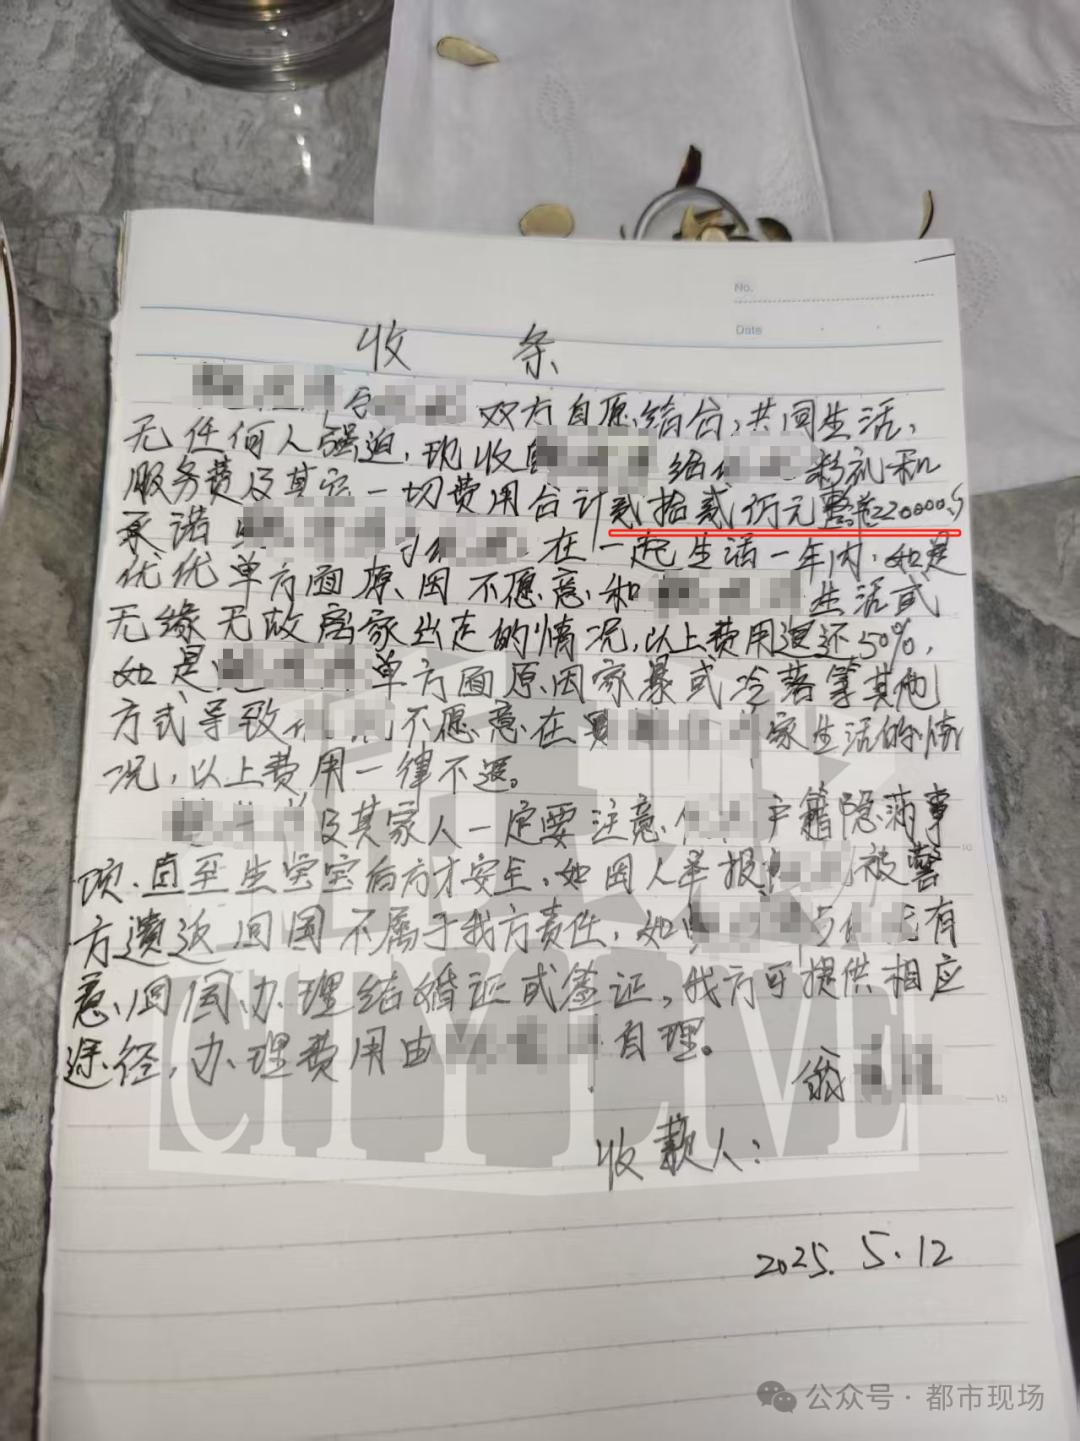 No.
Date
收 条
与 双方自愿结合,共同生活,
无任何人强迫,现收 给 彩礼和
服务费及其它一切费用合计贰拾贰仟元整 220000
承诺 在一起生活一年内,如是
优优单方面原因不愿意和 生活或
无缘无故离家出走的情况,以上费用退还50%,
如是 单方面原因家暴或冷落等其他
方式导致 不愿意在 家生活的情
况,以上费用一律不退。
及其家人一定要注意 户籍隐瞒事
项,直至生宝宝后方才安全,如因人举报 被警
方遣返回国不属于我方责任,如 与 有
意回国办理结婚证或签证,我方可提供相应
途径,办理费用由 自理。
翁
收款人:
2025.5.12
CITY LIVE
公众号·都市现场